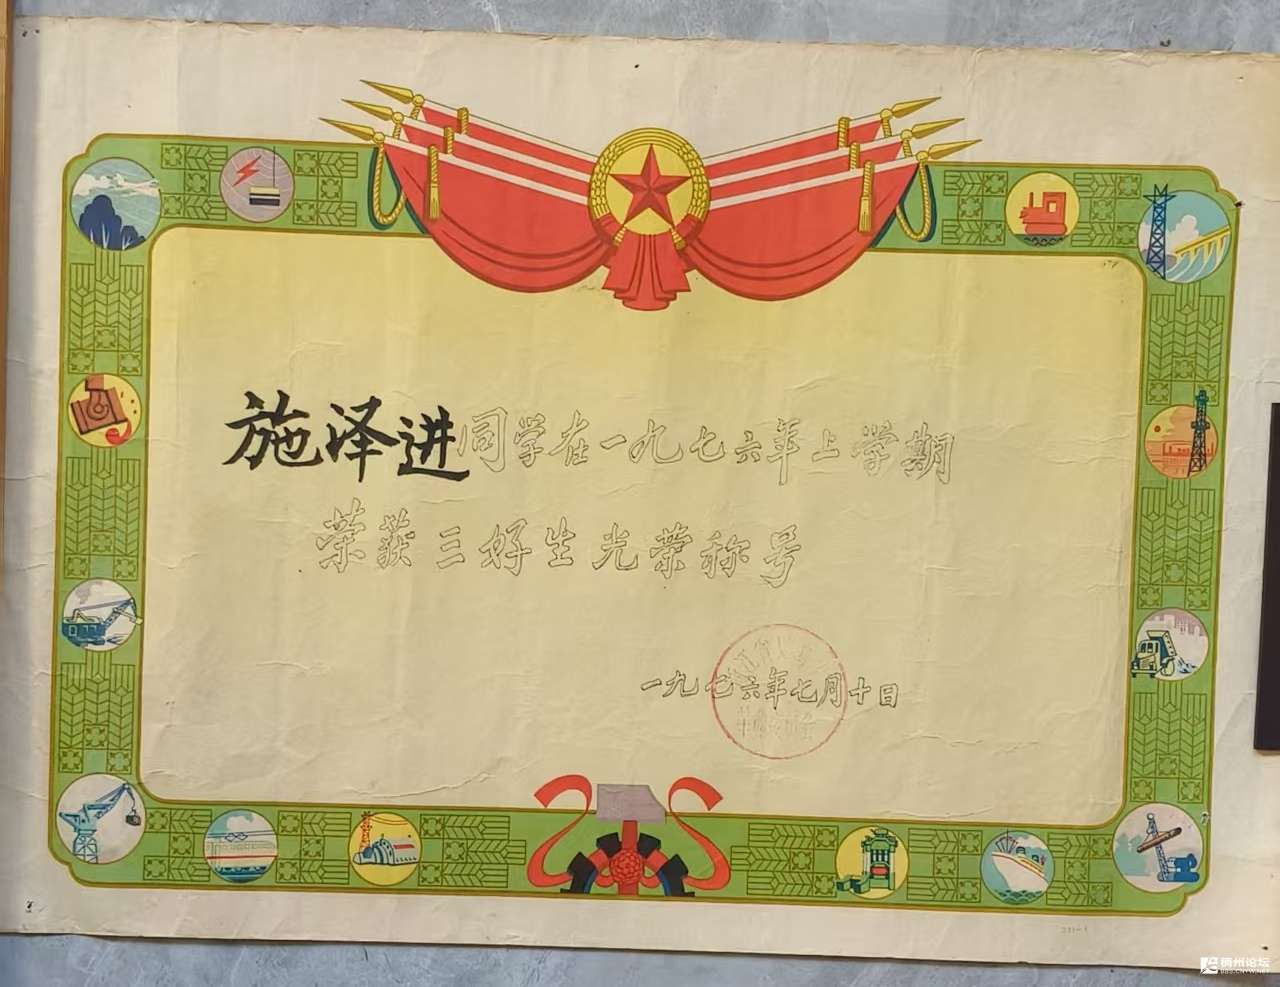 施泽进同学在一九七六年上学期
荣获三好生光荣称号
一九七六年七月十日
311-1
稠州论坛
BBS.CNYW.NET